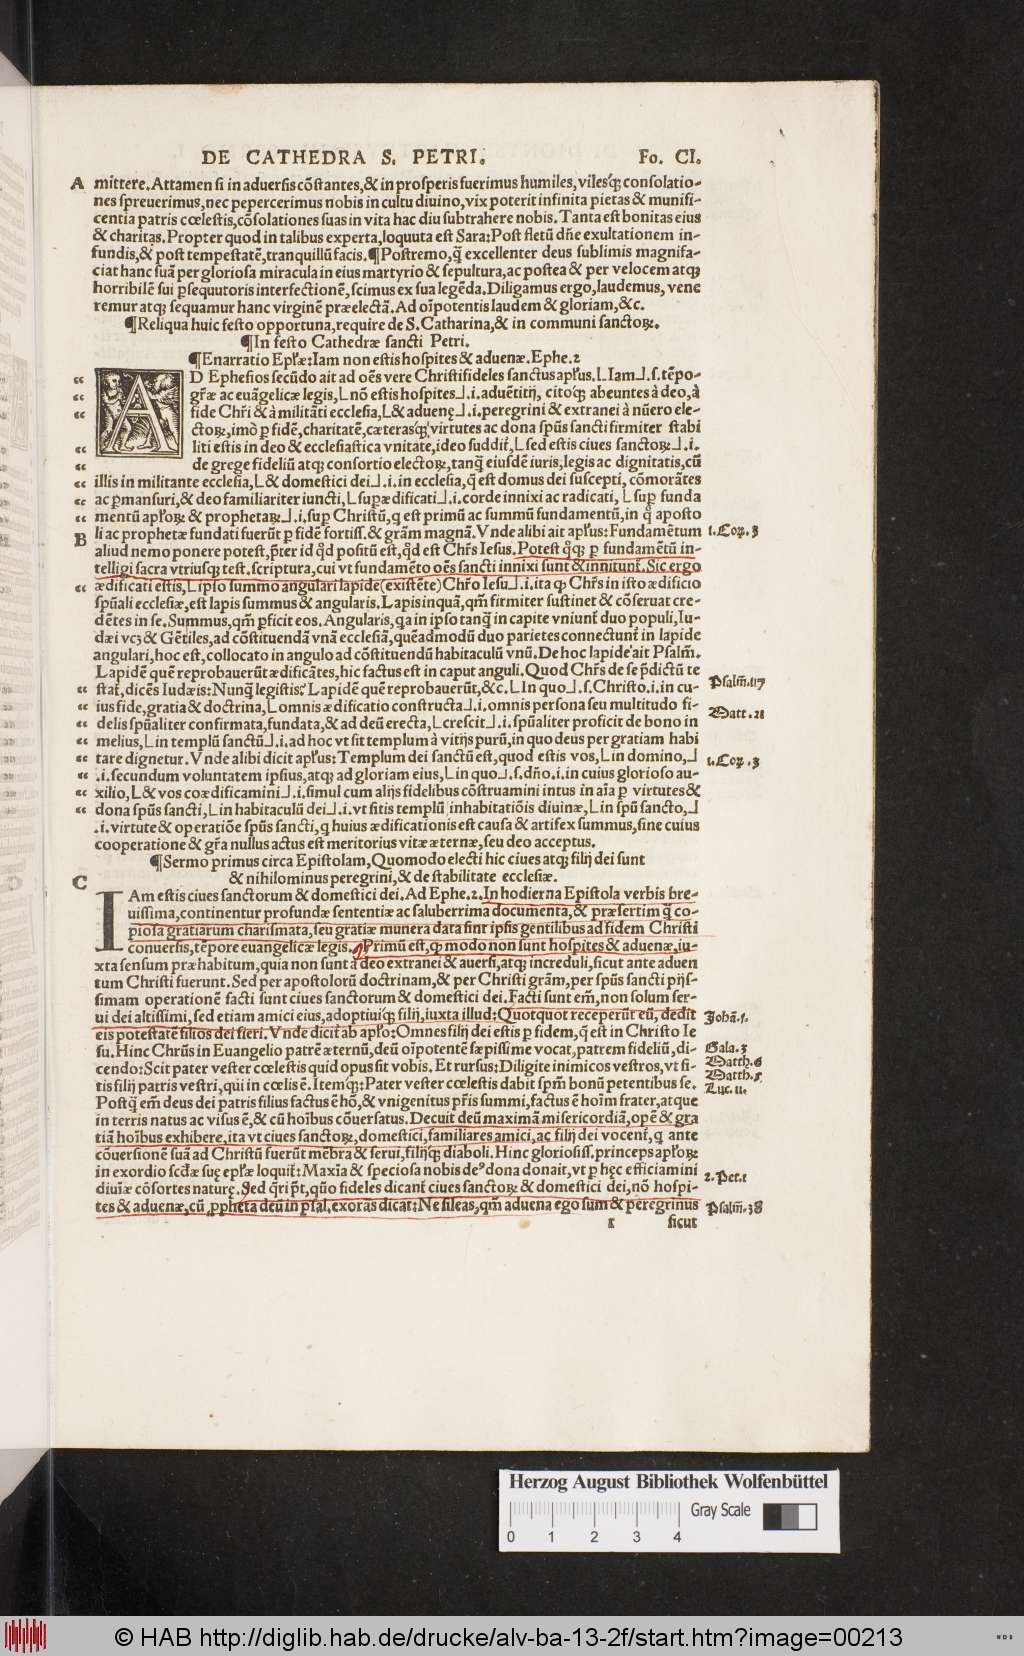 DE CATHEDRA S. PETRI. Fo. CI.
A mittere. Attamen si in aduersis cõstantes, & in prosperis fuerimus humiles, vilesq; consolatio-
nes spreuerimus, nec pepercerimus nobis in cultu diuino, vix poterit infinita pietas & munifi-
centia patris cœlestis, cõsolationes suas in vita hac diu subtrahere nobis. Tanta est bonitas eius
& charitas. Propter quod in talibus experta, loquuta est Sara: Post fletũ dñe exultationem in-
fundis, & post tempestatẽ, tranquillũ facis. ¶ Postremo, q̃ excellenter deus sublimis magnifa-
ciat hanc suã per gloriosa miracula in eius martyrio & sepultura, ac postea & per velocem atq;
horribilẽ sui ꝑsequutoris interfectionẽ, scimus ex sua legẽda. Diligamus ergo, laudemus, vene
remur atq; sequamur hanc virginẽ præelectã. Ad oĩpotentis laudem & gloriam, &c.
¶ Reliqua huic festo opportuna, require de S. Catharina, & in communi sanctoꝝ.
¶ In festo Cathedræ sancti Petri.
¶ Enarratio Epl'æ: Iam non estis hospites & aduenæ. Ephe. 2
AD Ephesios secũdo ait ad oẽs vere Christifideles sanctus apl'us. L Iam ⅃ .s. tẽpo-
gr̃æ ac euãgelicæ legis, L nõ estis hospites ⅃ .i. aduẽtitij, citoq; abeuntes à deo, à
fide Chr̃i & à militãti ecclesia, L & aduenę ⅃ .i. peregrini & extranei à nũero ele-
ctoꝝ, imò ꝑ fidẽ, charitatẽ, cæterasq; virtutes ac dona spũs sancti firmiter stabi
liti estis in deo & ecclesiastica vnitate, ideo suddit, L sed estis ciues sanctoꝝ ⅃ .i.
de grege fideliũ atq; consortio electoꝝ, tanq̃ eiusdẽ iuris, legis ac dignitatis, cũ
illis in militante ecclesia, L & domestici dei ⅃ .i. in ecclesia, q̃ est domus dei suscepti, cõmorãtes
ac ꝑmansuri, & deo familiariter iuncti, L suꝑædificati ⅃ .i. corde innixi ac radicati, L suꝑ funda
mentũ apl'oꝝ & prophetaꝝ ⅃ .i. suꝑ Christũ, q est primũ ac summũ fundamentũ, in q̊ aposto
B li ac prophetæ fundati fuerũt ꝑ fidẽ fortiss. & grãm magnã. Vnde alibi ait apl'us: Fundamẽtum 1. Coꝝ. 3
aliud nemo ponere potest, p̃ter id qď positũ est, qď est Chr̃s Iesus. Potest q̊q; ꝑ fundamẽtũ in-
telligi sacra vtriusq; test. scriptura, cui vt fundamẽto oẽs sancti innixi sunt & innitunt̃. Sic ergo
ædificati estis, L ipso summo angulari lapide (existẽte) Chr̃o Iesu ⅃ .i. ita ꝙ Chr̃s in isto ædificio
spũali ecclesiæ, est lapis summus & angularis. Lapis inquã, qm̃ firmiter sustinet & cõseruat cre-
dẽtes in se. Summus, qm̃ ꝑficit eos. Angularis, qa in ipso tanq̃ in capite vniunt̃ duo populi, Iu-
dæi vcȝ & Gẽtiles, ad cõstituendã vnã ecclesiã, quẽadmodũ duo parietes connectunt̃ in lapide
angulari, hoc est, collocato in angulo ad cõstituendũ habitaculũ vnũ. De hoc lapide ait Psalm̃.
Lapidẽ quẽ reprobauerũt ædificãtes, hic factus est in caput anguli. Quod Chr̃s de se p̃dictũ te Psalm̃. 117
stat̃, dicẽs Iudæis: Nunq̃ legistis: Lapidẽ quẽ reprobauerũt, &c. L In quo ⅃ .s. Christo .i. in cu-
ius fide, gratia & doctrina, L omnis ædificatio constructa ⅃ .i. omnis persona seu multitudo fi- Matt. 21
delis spũaliter confirmata, fundata, & ad deũ erecta, L crescit ⅃ .i. spũaliter proficit de bono in
melius, L in templũ sanctũ ⅃ .i. ad hoc vt sit templum à vitijs purũ, in quo deus per gratiam habi
tare dignetur. Vnde alibi dicit apl'us: Templum dei sanctũ est, quod estis vos, L in domino, ⅃ 1. Coꝝ. 3
.i. secundum voluntatem ipsius, atq; ad gloriam eius, L in quo ⅃ .s. dño, .i. in cuius glorioso au-
xilio, L & vos coædificamini ⅃ .i. simul cum alijs fidelibus cõstruamini intus in aĩa ꝑ virtutes &
dona spũs sancti, L in habitaculũ dei ⅃ .i. vt sitis templũ inhabitatiõis diuinæ, L in spũ sancto, ⅃
.i. virtute & operatiõe spũs sancti, q huius ædificationis est causa & artifex summus, sine cuius
cooperatione & gr̃a nullus actus est meritorius vitæ æternæ, seu deo acceptus.
¶ Sermo primus circa Epistolam, Quomodo electi hic ciues atq; filij dei sunt
& nihilominus peregrini, & de stabilitate ecclesiæ.
C IAm estis ciues sanctorum & domestici dei. Ad Ephe. 2. In hodierna Epistola verbis bre-
uissima, continentur profundæ sententiæ ac saluberrima documenta, & præsertim q̃ co-
piosa gratiarum charismata, seu gratiæ munera data sint ipsis gentilibus ad fidem Christi
conuersis, tẽpore euangelicæ legis. ¶ Primũ est, ꝙ modo non sunt hospites & aduenæ, iu-
xta sensum præhabitum, quia non sunt à deo extranei & auersi, atq; increduli, sicut ante aduen
tum Christi fuerunt. Sed per apostolorũ doctrinam, & per Christi grãm, per spũs sancti pijs-
simam operationẽ facti sunt ciues sanctorum & domestici dei. Facti sunt em̃, non solum ser-
ui dei altissimi, sed etiam amici eius, adoptiuiq; filij, iuxta illud: Quotquot receperũt eũ, dedit Johã. 1.
eis potestatẽ filios dei fieri. Vnde dicit̃ ab apl'o: Omnes filij dei estis ꝑ fidem, q̃ est in Christo Ie
su. Hinc Chr̃us in Euangelio patrẽ æternũ, deũ oĩpotentẽ sæpissime vocat, patrem fideliũ, di- Gala. 3
cendo: Scit pater vester cœlestis quid opus sit vobis. Et rursus: Diligite inimicos vestros, vt si- Matth. 6
tis filij patris vestri, qui in cœlis ẽ. Itemq;: Pater vester cœlestis dabit spm̃ bonũ petentibus se. Matth. 5 Luc. 11.
Postq̃ em̃ deus dei patris filius factus ẽ hõ, & vnigenitus pr̃is summi, factus ẽ hoĩm frater, atque
in terris natus ac visus ẽ, & cũ hoĩbus cõuersatus. Decuit deũ maximã misericordiã, opẽ & gra
tiã hoĩbus exhibere, ita vt ciues sanctoꝝ, domestici, familiares amici, ac filij dei vocent̃, q ante
cõuersionẽ suã ad Christũ fuerũt mẽbra & serui, filijq; diaboli. Hinc gloriosiss. princeps apl'oꝝ
in exordio scd̃æ suę epl'æ loquit̃: Maxĩa & speciosa nobis de⁹ dona donait, vt ꝑ hęc efficiamini
diuĩæ cõsortes naturę. Sed q̃rip̃t, qũo fideles dicant̃ ciues sanctoꝝ & domestici dei, nõ hospi- 2. Pet. 1
tes & aduenæ, cũ ꝓpheta deũ in psal. exorãs dicat: Ne sileas, qm̃ aduena ego sum & peregrinus Psalm̃. 38
r sicut
Herzog August Bibliothek Wolfenbüttel
0 1 2 3 4 Gray Scale
© HAB http://diglib.hab.de/drucke/alv-ba-13-2f/start.htm?image=00213